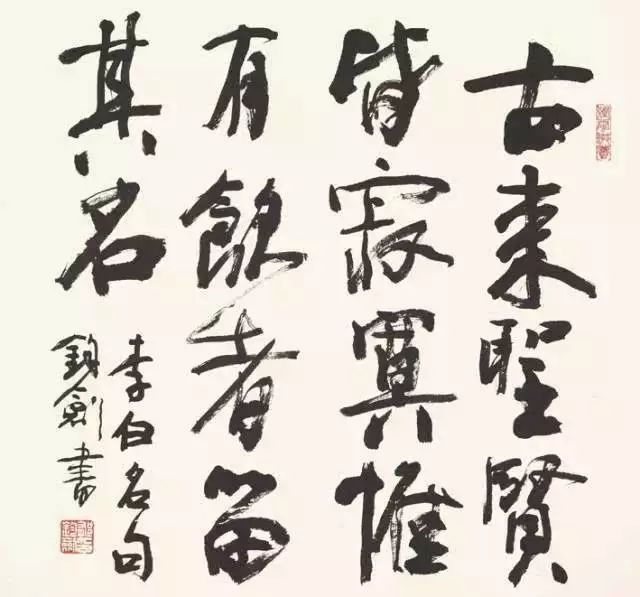 古来聖賢
皆寂寞惟
有飲者留
其名
李白名句
鈞劍書